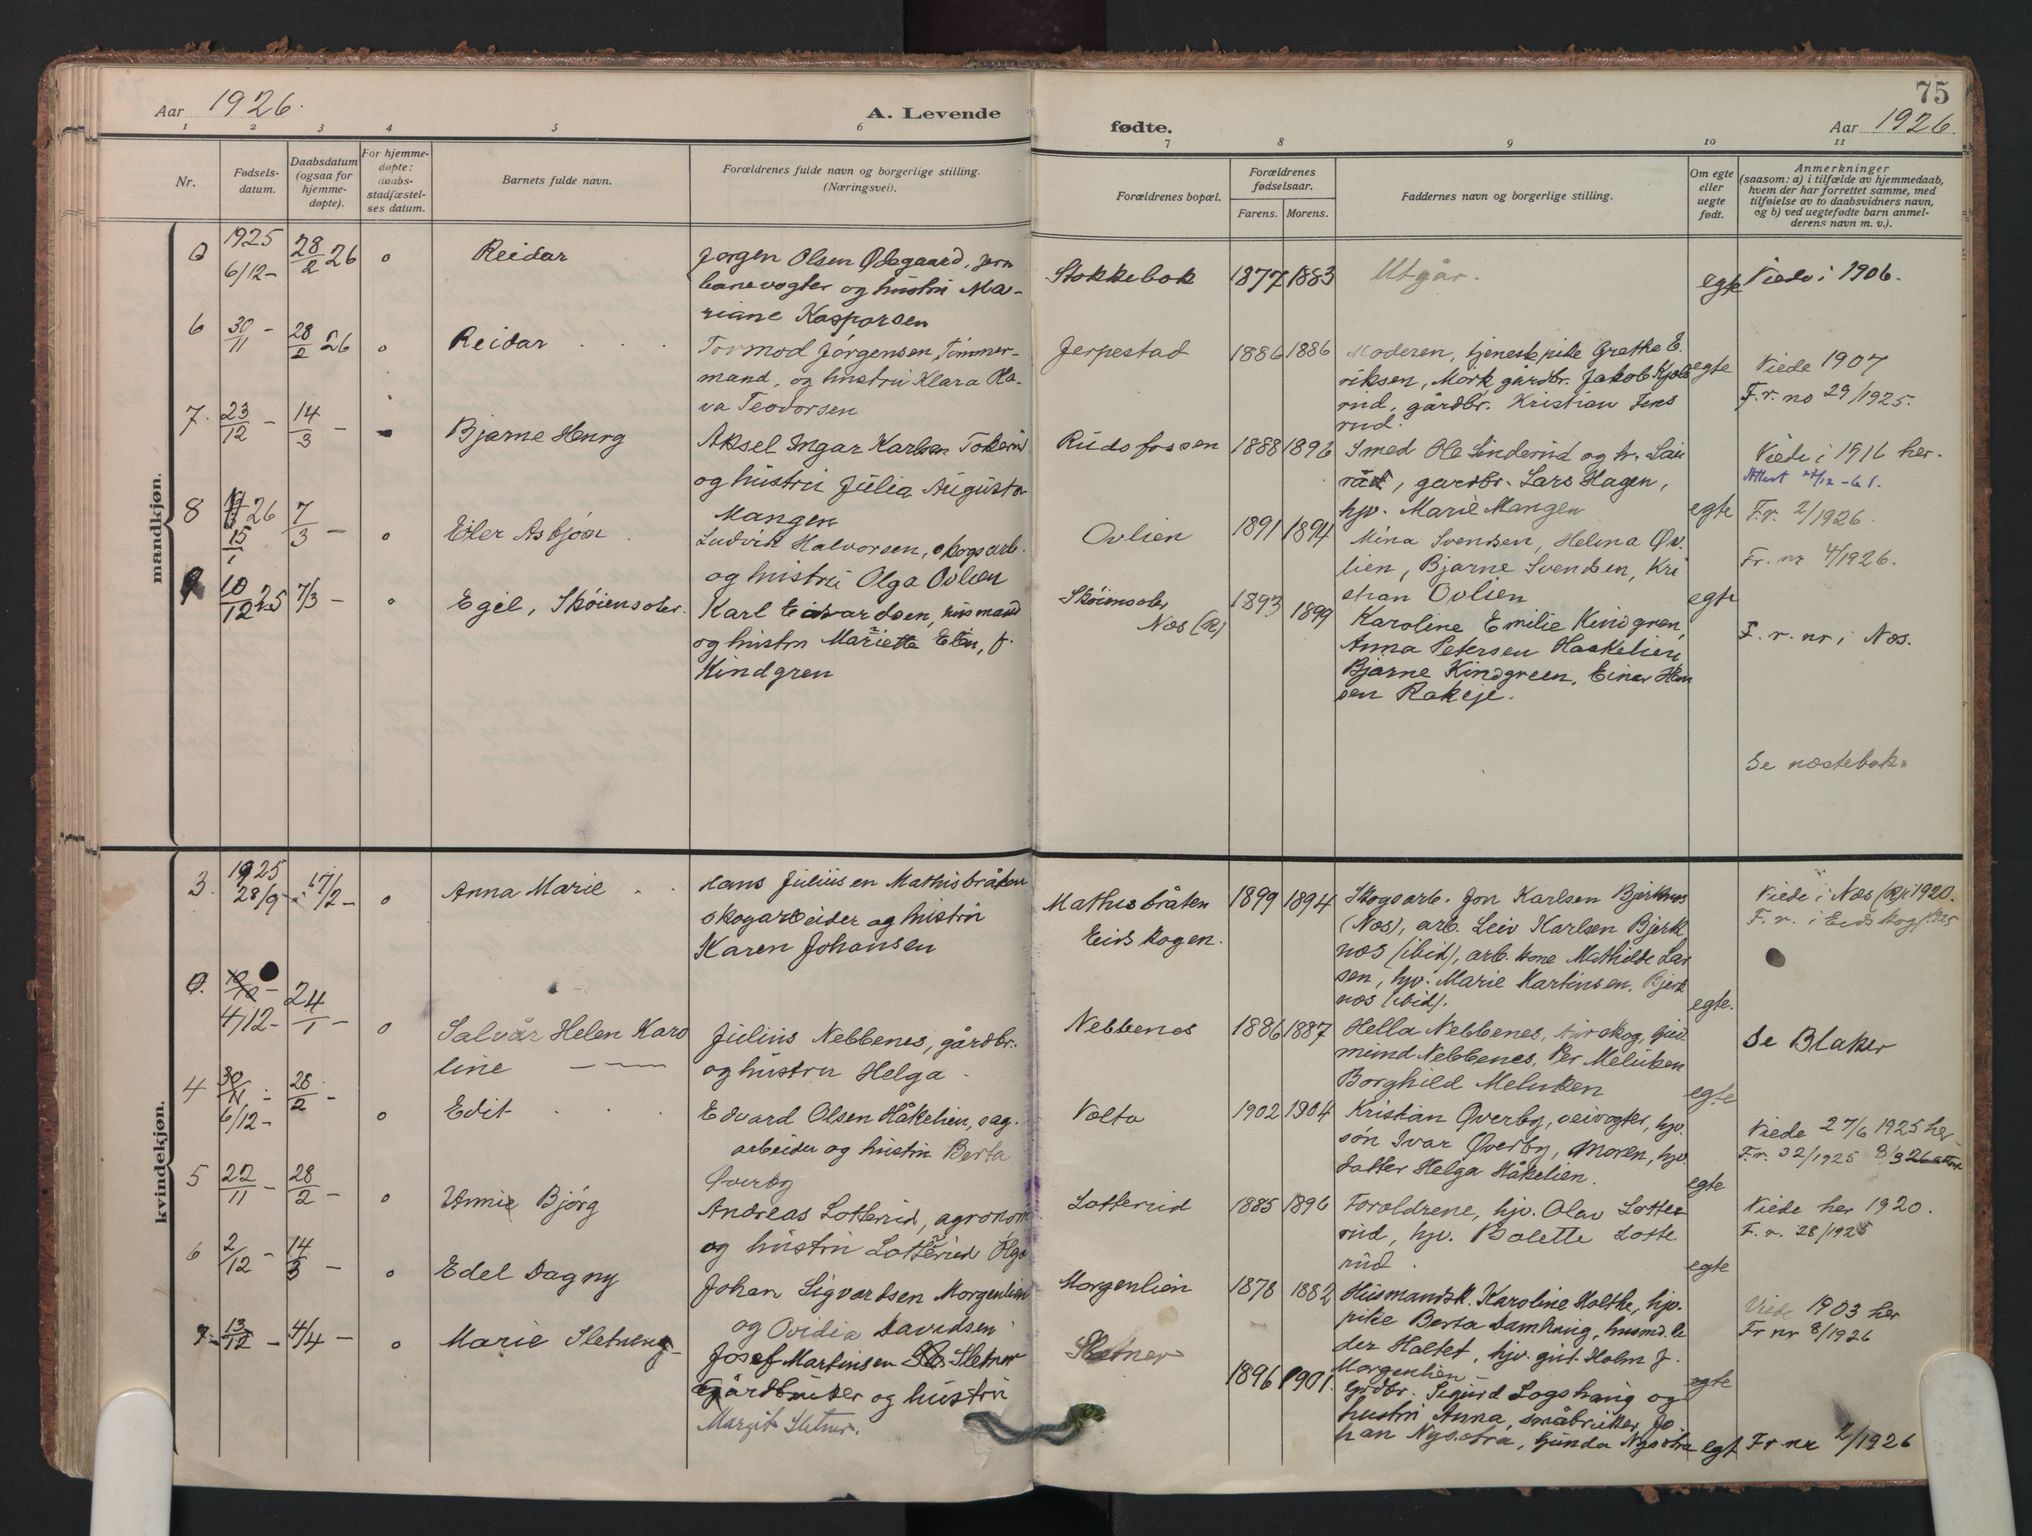 Aar 1926.
A. Levende
fødte.
75
Aar 1926.
1 2 3 4 5 6 7 8 9 10 11
Nr.
Fødsels-
datum.
Daabsdatum
(ogsaa for
hjemme-
døpte).
For hjemme-
døpte:
daabs-
stadfæstel-
ses datum.
Barnets fulde navn.
Forældrenes fulde navn og borgerlige stilling.
(Næringsvei).
Forældrenes bopæl.
Forældrenes
fødselsaar.
Farens. Morens.
Faddernes navn og borgerlige stilling.
Om egte
eller
uegte
født.
Anmerkninger
(saasom: a) i tilfælde av hjemmedaab,
hvem der har forrettet samme, med
tilføielse av to daabsvidners navn,
og b) ved uegtefødte barn anmel-
derens navn m. v.).
mandkjøn.
0 1925 6/12 - 28/2 26 0 Reidar
Jørgen Olsen Ødegaard, jern
banevogter og hustru Ma-
riane Kaspersen
Stokkebok 1877 1883 Utgår. egte Viede i 1906.
6 30/11 - 28/2 26 0 Reidar
Tormod Jørgensen, Tømmer-
mand, og hustru Klara Ha-
va Teodorsen
Jerpestad 1886 1886
Moderen, tjenestepike Grethe E.
riksen, Mork, gårdbr. Jakob
rud, gårdbr. Kristian Jens
rud.
egte
Viede 1907
F.r. no 29/1925.
7. 23/12 - 14/3 - Bjarne Henry
Aksel Ingar Karlsen
og hustru Julia Augusta
Mangen
Rudsfossen 1888 1896
Smed Ole Linderud og h. Lau
gardbr. Lars Hagen,
hjv. Marie Mangen
egte
Viede i 1916 her.
Attest 27/12 -61.
F.r. 2/1926.
8 26 15/1 7/3 - 0 Eiler Asbjørn
Ludvik Halvorsen, skogsarb.
og hustru Olga Ovlien
Ovlien 1891 1894
Mina Svendsen, Helma Øv.
lien, Bjarne Svendsen, Kri
stian Ovlien
egte
F.r. nr 4/1926.
9 10/12 25 7/3 - 0 Egil, Skøienseter
Karl Edvardsen, husmand
og hustru Mariette Elin, f.
Kindgren
Skøienseter
Næs (R) 1893 1899
Karoline Emilie Kindgren,
Anna Petersen Haakelien
Bjarne Kindgreen, Einar Han
sen Rakeje.
F. r. nr i Næs.
Se næstebok.
kvindekjøn.
3. 1925 28/9 - 17/2 - 0 Anna Marie
Hans Juliusen Mathisbråten
skogarbeider og hustru
Karen Johansen
Mathisbråten
Eidskogen. 1899 1894
Skogsarb. Jon Karlsen Bjerknes
(Næs), arb. Leiv Karlsen Bjerk
næs (ibid), arb. kone Mathilde Lar
sen, hjv. Marie Martinsen, Bjerk
næs (ibid).
egte.
Viede i Næs (R) i 1920.
F. r. i Eidskog
0. 4/12 - 24/1 - 0 Salvår Helen Karo
line
Julius Nebbenes, gårdbr.
og hustru Helga
Nebbenes 1886 1887
Hella Nebbenes, Aurskog, Gud
mund Nebbenes, Per Melukken
Borghild Melukken
egte
Se Blaker
4 30/11 - 6/12 - 28/2 - 0 Edit
Edvard Olsen Håkelien, sag.
arbeider og hustru Berta
Øverby
Vølta 1902 1904
Kristian Øverby, veivogter, hjv.
søn Ivar Øverby, Moren, hjv.
datter Helga Håkelien.
egte
Viede 27/6 1925 her
F.r. 32/1925
5 22/11 - 28/2 - 0 Unnie Bjørg
Andreas Lotterud, agronom
og hustru Lotterud Olga
Lotterud 1885 1896
Foroldrene, hjv. Olav Lotte
rud, hjv. Bolette Lotte
rud.
egte
Viede her 1920.
F. r. 28/1925
6 2/12 - 14/3 - 0 Edel Dagny
Johan Sigvardsen Morgenlien
og Ovidia Davidsen
Morgenlien 1878 1882
Husmandsk. Karoline Holthe, hjv.
pike Berta Damhaug, husmd. Pe
der Holtet, hjv. gut. Holm J.
Morgenlien
egte
Viede 1903 her
Fr nr 8/1926
7 13/12 - 4/4 - 0 Marie Sletneng
Josef Martinsen Sletner
gårdbruker og hustru
Margit Sletner.
Sletner 1896 1901.
Grdbr. Sigurd Logshaug og
hustru Anna, småbruker, Jo
han Nysætra, Gunda Nysætra
egt Fr. nr 2/1926